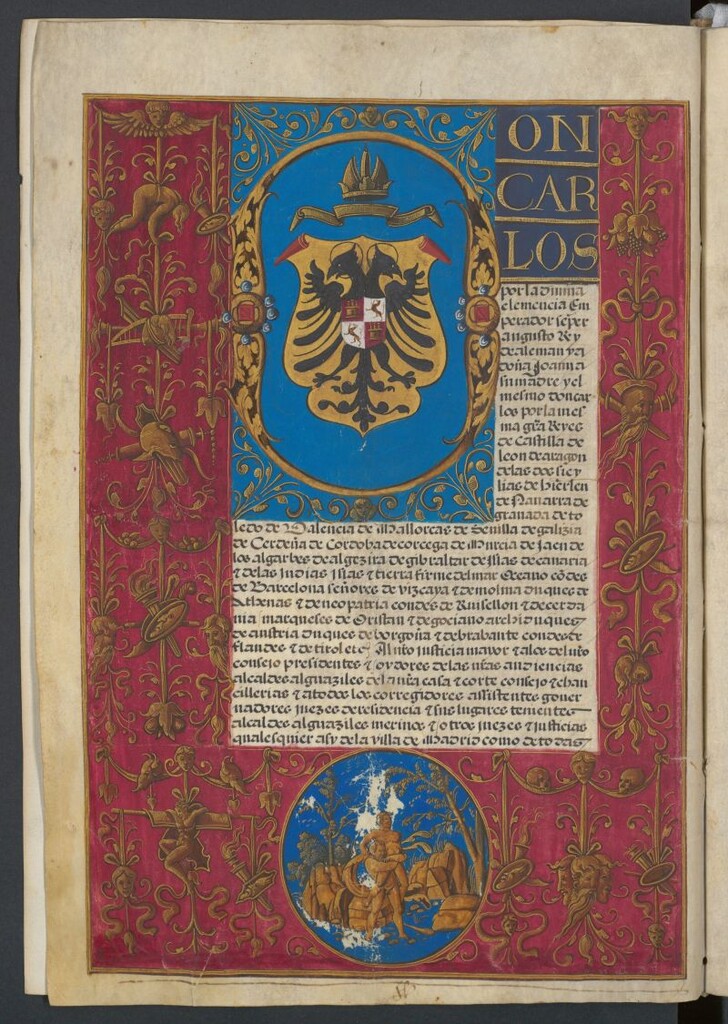 ON
CAR
LOS
por la divina
clemencia Em
perador sẽper
augusto Rey
de alemanya
doña Joana
su madre y el
mesmo don car
los por la mes
ma grã Reyes
de Castilla de
leon de aragon
de las dos sicy
lias de hierlen
de Navarra de
granada de to
ledo de Valencia de Mallorcas de Sevilla de galizia
de Cerdeña de Cordoba de corcega de Murcia de Jaen de
los algarbes de algezira de gibraltar de Islas de canaria
& de las Indias Islas & tierra firme del mar Oceano cõdes
de Barcelona señores de vizcaya & de molina duques de
Athenas & de neopatria condes de Ruisellon & de cerda
nia marqueses de Oristan & de gociano archiduques
de austria duques de borgoña & de brabante condes de
flandes & de tirol etc. Al nr̃o justicia mayor & a los del nr̃o
consejo presidentes & oydores de las nr̃as audiencias
alcaldes alguaziles de la nr̃a casa & corte consejo & chan
cillerias & a todos los corregidores assistentes gover
nadores juezes de residencia & sus lugares tenientes
alcaldes alguaziles merinos & otros juezes & justicias
qualesquier asy de la villa de Madrid como de todas